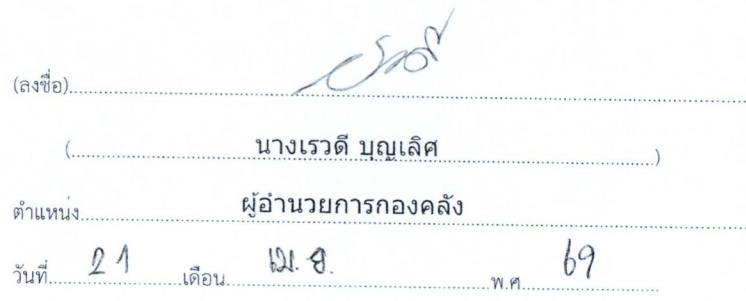 (ลงชื่อ)
(นางเรวดี บุญเลิศ)
ตำแหน่ง ผู้อำนวยการกองคลัง
วันที่ 21 เดือน เม.ย. พ.ศ. 69